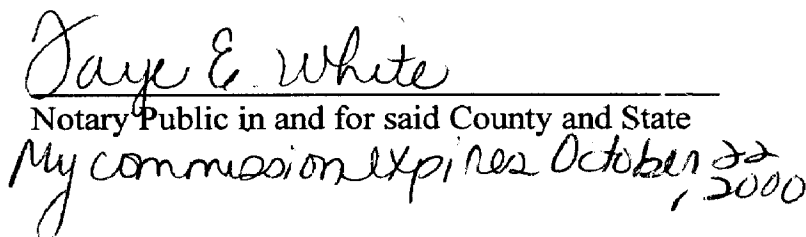 Faye E. White
Notary Public in and for said County and State
My commission expires October 22
, 2000